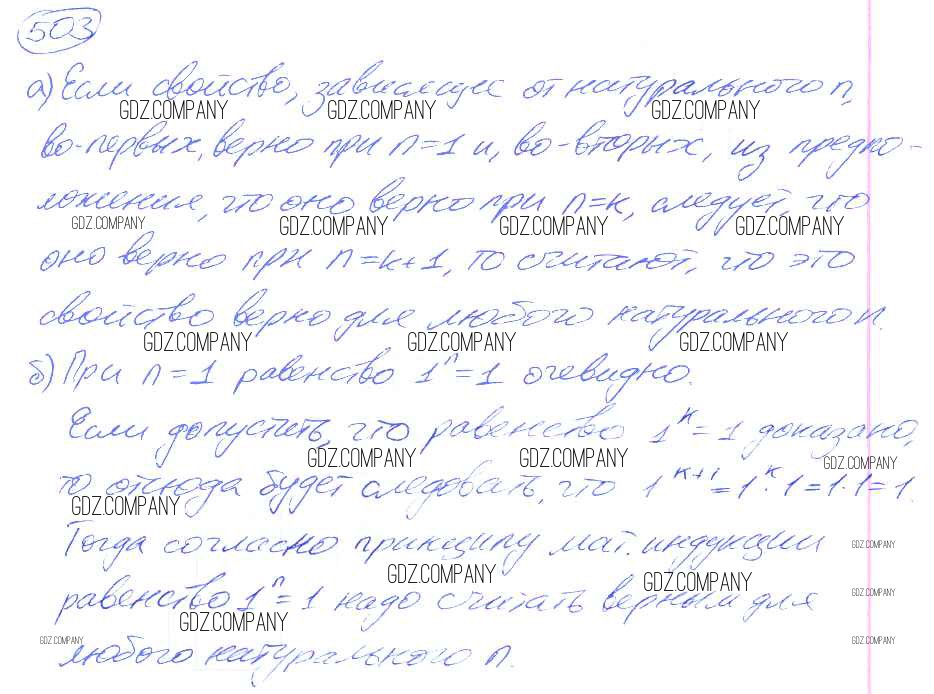 503
а) Если свойство, зависящее от натурального n,
GDZ.COMPANY GDZ.COMPANY GDZ.COMPANY
во-первых, верно при n=1 и, во-вторых, из предпо-
ложения, что оно верно при n=к, следует, что
GDZ.COMPANY GDZ.COMPANY GDZ.COMPANY GDZ.COMPANY
оно верно при n=к+1, то считают, что это
свойство верно для любого натурального n.
GDZ.COMPANY GDZ.COMPANY GDZ.COMPANY
б) При n=1 равенство 1ⁿ=1 очевидно.
Если допустить, что равенство 1ᴷ=1 доказано,
GDZ.COMPANY GDZ.COMPANY GDZ.COMPANY
то отсюда будет следовать, что 1ᴷ⁺¹=1ᴷ·1=1·1=1.
GDZ.COMPANY
Тогда согласно принципу мат. индукции
GDZ.COMPANY
GDZ.COMPANY GDZ.COMPANY
равенство 1ⁿ=1 надо считать верным для
GDZ.COMPANY
GDZ.COMPANY
GDZ.COMPANY GDZ.COMPANY
любого натурального n.